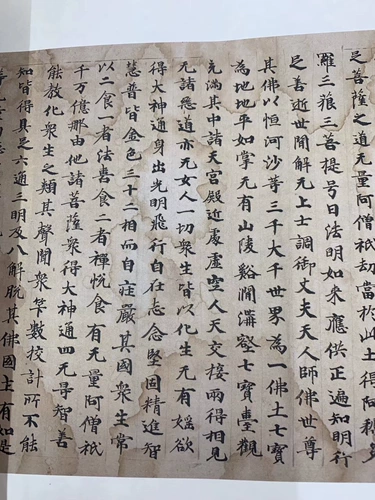 足菩薩之道无量阿僧祇劫當於此土得阿耨多
羅三藐三菩提号曰法明如来應供正遍知明行
足善逝世間解无上士調御丈夫天人師佛世尊
其佛以恒河沙等三千大千世界為一佛土七寶
為地地平如掌无有山陵谿澗溝壑七寶臺觀
充滿其中諸天宮殿近處虛空人天交接兩得相見
无諸惡道亦无女人一切衆生皆以化生无有婬欲
得大神通身出光明飛行自在志念堅固精進智
慧普皆金色三十二相而自莊嚴其國衆生常
以二食一者法喜食二者禪悅食有无量阿僧祇
千万億那由他諸菩薩衆得大神通四无㝵智善
能教化衆生之類其聲聞衆筭數校計所不能
知皆得具足六通三明及八解脫其佛國土有如是